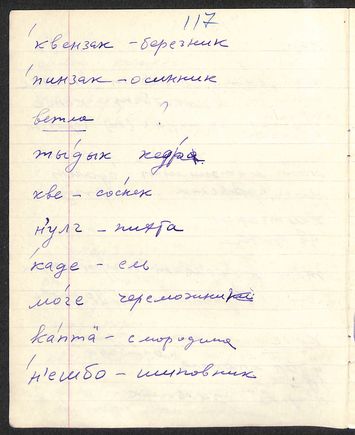 117
ква́нзак – березник
пи́нзак – осинник
ветла ?
ты́дык кедра
кве – со́снек
н'улг – пихта
ка́де – ель
мо́ге череможник
ка́птӓ – смородина
н'ешбо – шиповник